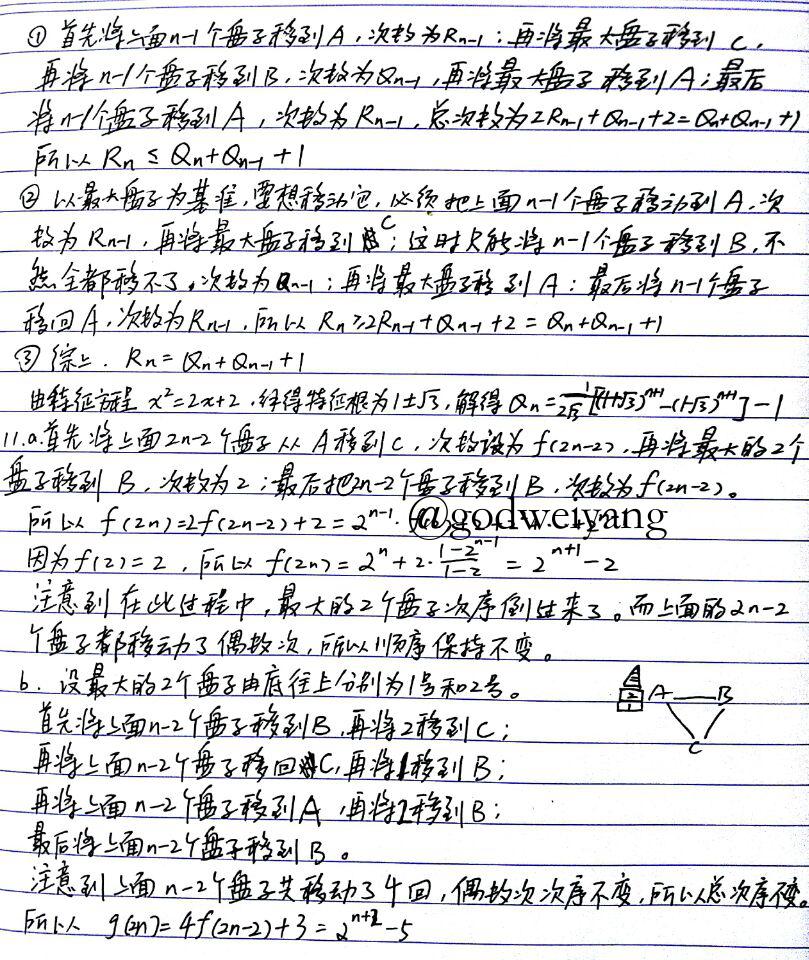 ① 首先将上面n-1个盘子移到A，次数为Rn-1；再将最大盘子移到C，
再将n-1个盘子移到B，次数为Qn-1，再将最大盘子移到A；最后
将n-1个盘子移到A，次数为Rn-1，总次数为2Rn-1+Qn-1+2=Qn+Qn-1+1
所以 Rn ≤ Qn+Qn-1+1
② 以最大盘子为基准，要想移动它，必须把上面n-1个盘子移动到A，次
数为Rn-1，再将最大盘子移到C；这时只能将n-1个盘子移到B，不
然全都移不了。次数为Qn-1；再将最大盘子移到A；最后将n-1个盘子
移回A，次数为Rn-1，所以 Rn≥2Rn-1+Qn-1+2=Qn+Qn-1+1
③ 综上，Rn=Qn+Qn-1+1
由特征方程 x²=2x+2，解得特征根为1±√3，解得 Qn=1/2√3[(1+√3)ⁿ⁺¹-(1-√3)ⁿ⁺¹]-1
11.a.首先将上面2n-2个盘子从A移到C，次数设为f(2n-2)，再将最大的2个
盘子移到B，次数为2；最后把2n-2个盘子移到B，次数为f(2n-2)。
所以 f(2n)=2f(2n-2)+2=2ⁿ⁻¹·
@godweiyang
因为f(2)=2，所以 f(2n)=2ⁿ+2·(1-2ⁿ⁻¹)/(1-2)=2ⁿ⁺¹-2
注意到在此过程中，最大的2个盘子次序倒过来了。而上面的2n-2
个盘子都移动了偶数次，所以顺序保持不变。
b. 设最大的2个盘子由底往上分别为1号和2号。
首先将上面n-2个盘子移到B，再将2移到C；
再将上面n-2个盘子移回C，再将1移到B；
再将上面n-2个盘子移到A，再将2移到B；
最后将上面n-2个盘子移到B。
2
1
A B
C
注意到上面n-2个盘子共移动了4回，偶数次次序不变，所以总次序不变。
所以 g(2n)=4f(2n-2)+3=2ⁿ⁺²-5